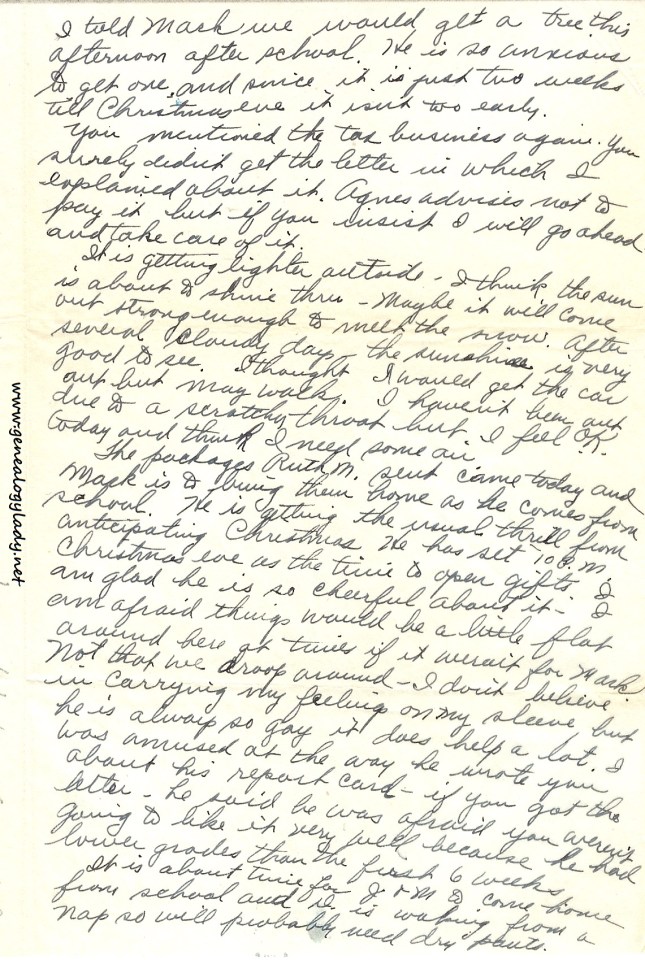 I told Mark we would get a tree this
afternoon after school. He is so anxious
to get one, and since it is just two weeks
till Christmas eve it isn't too early.
You mentioned the tax business again. You
surely didn't get the letter in which I
explained about it. Agnes advises not to
pay it but if you insist I will go ahead
and take care of it.
It is getting lighter outside - I think the sun
is about to shine thru - Maybe it will come
out strong enough to melt the snow. After
several cloudy days the sunshine is very
good to see. I thought I would get the car
out but may walk. I haven't been out
due to a scratchy throat but I feel OK
today and think I need some air.
The packages Ruth M. sent came today and
Mark is to bring them home as he comes from
school. He is getting the usual thrill from
anticipating Christmas. He has set 10 P.M
Christmas eve as the time to open gifts. I
am glad he is so cheerful about it - I
am afraid things would be a little flat
around here at times if it weren't for Mark.
Not that we droop around - I don't believe
in carrying my feeling on my sleeve, but
he is always so gay it does help a lot. I
was amused at the way he wrote you
about his report card - if you got the
letter - he said he was afraid you weren't
going to like it very well because he had
lower grades than the first 6 weeks
It is about time for J & M to come home
from school and is waking from a
nap so will probably need dry pants.
www.genealogylady.net